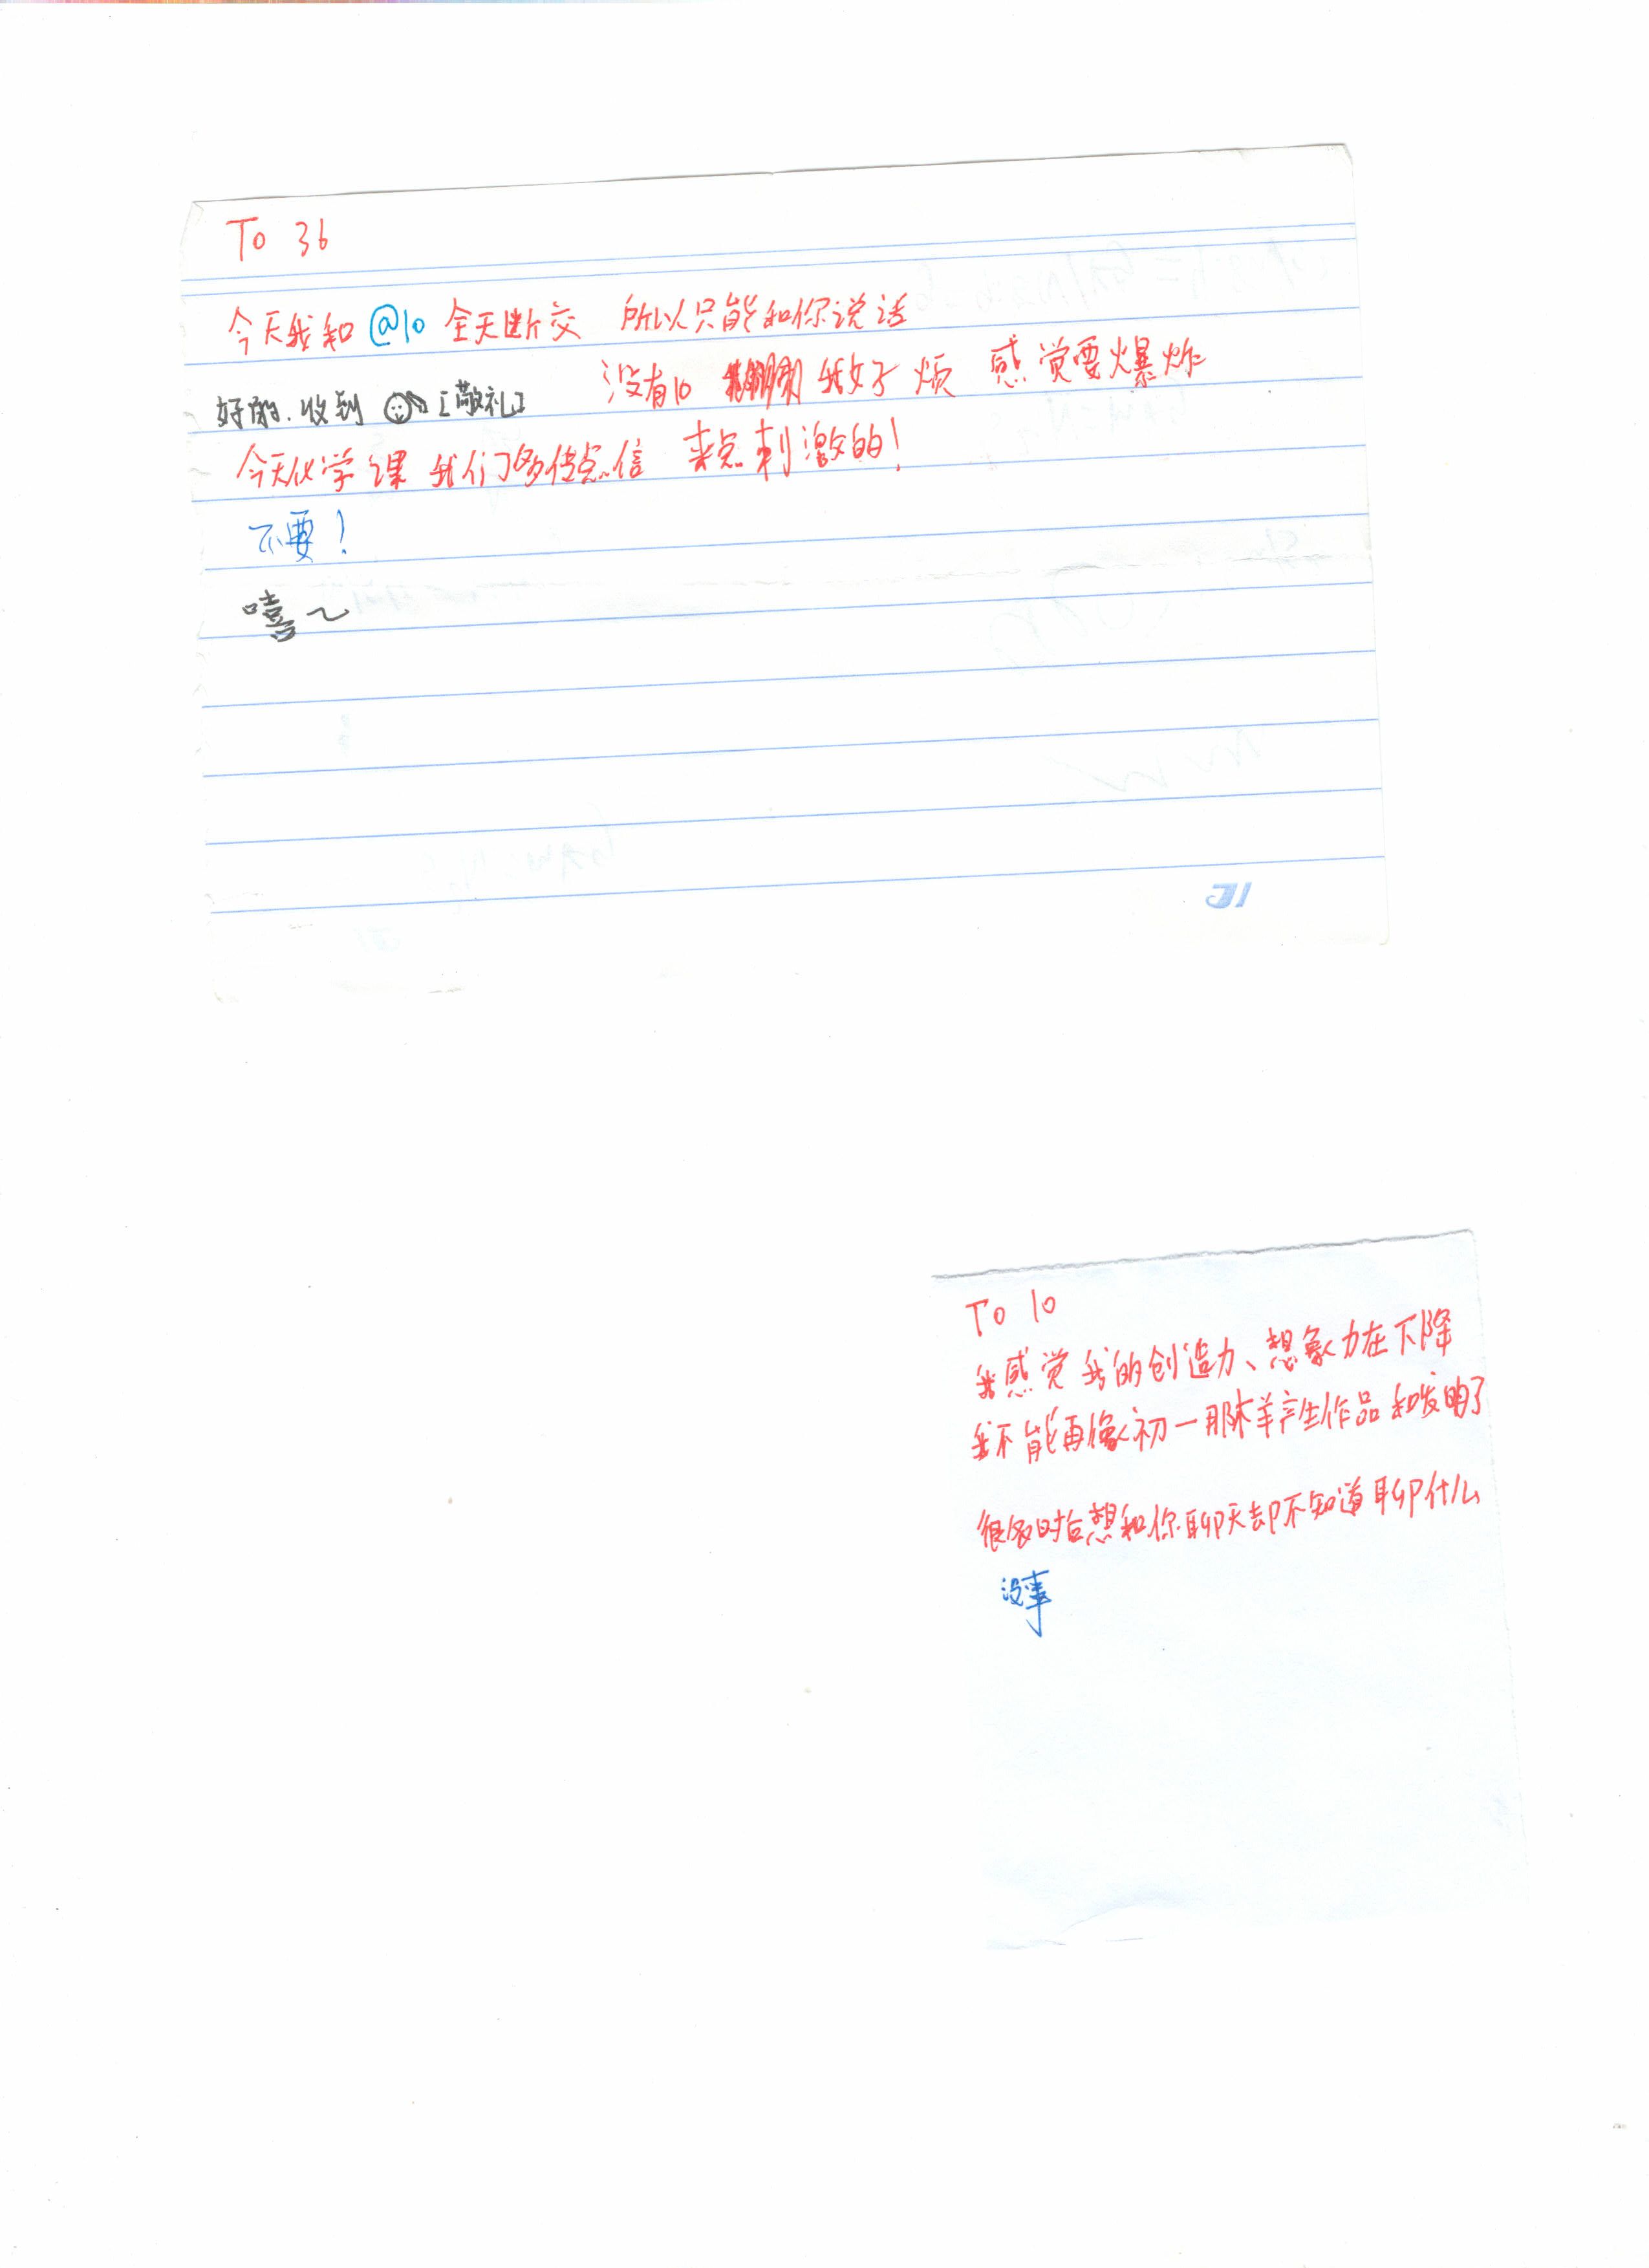 To 36
今天我和 @10 全天断交 所以只能和你说话
没有10 我好烦 感觉要爆炸
好的.收到 [敬礼]
今天化学课 我们多传点信 来点刺激的!
不要!
嘻~
To 10
我感觉我的创造力、想象力在下降
我不能再像初一那样产生作品和发明了
很多时后想和你聊天却不知道聊什么
没事